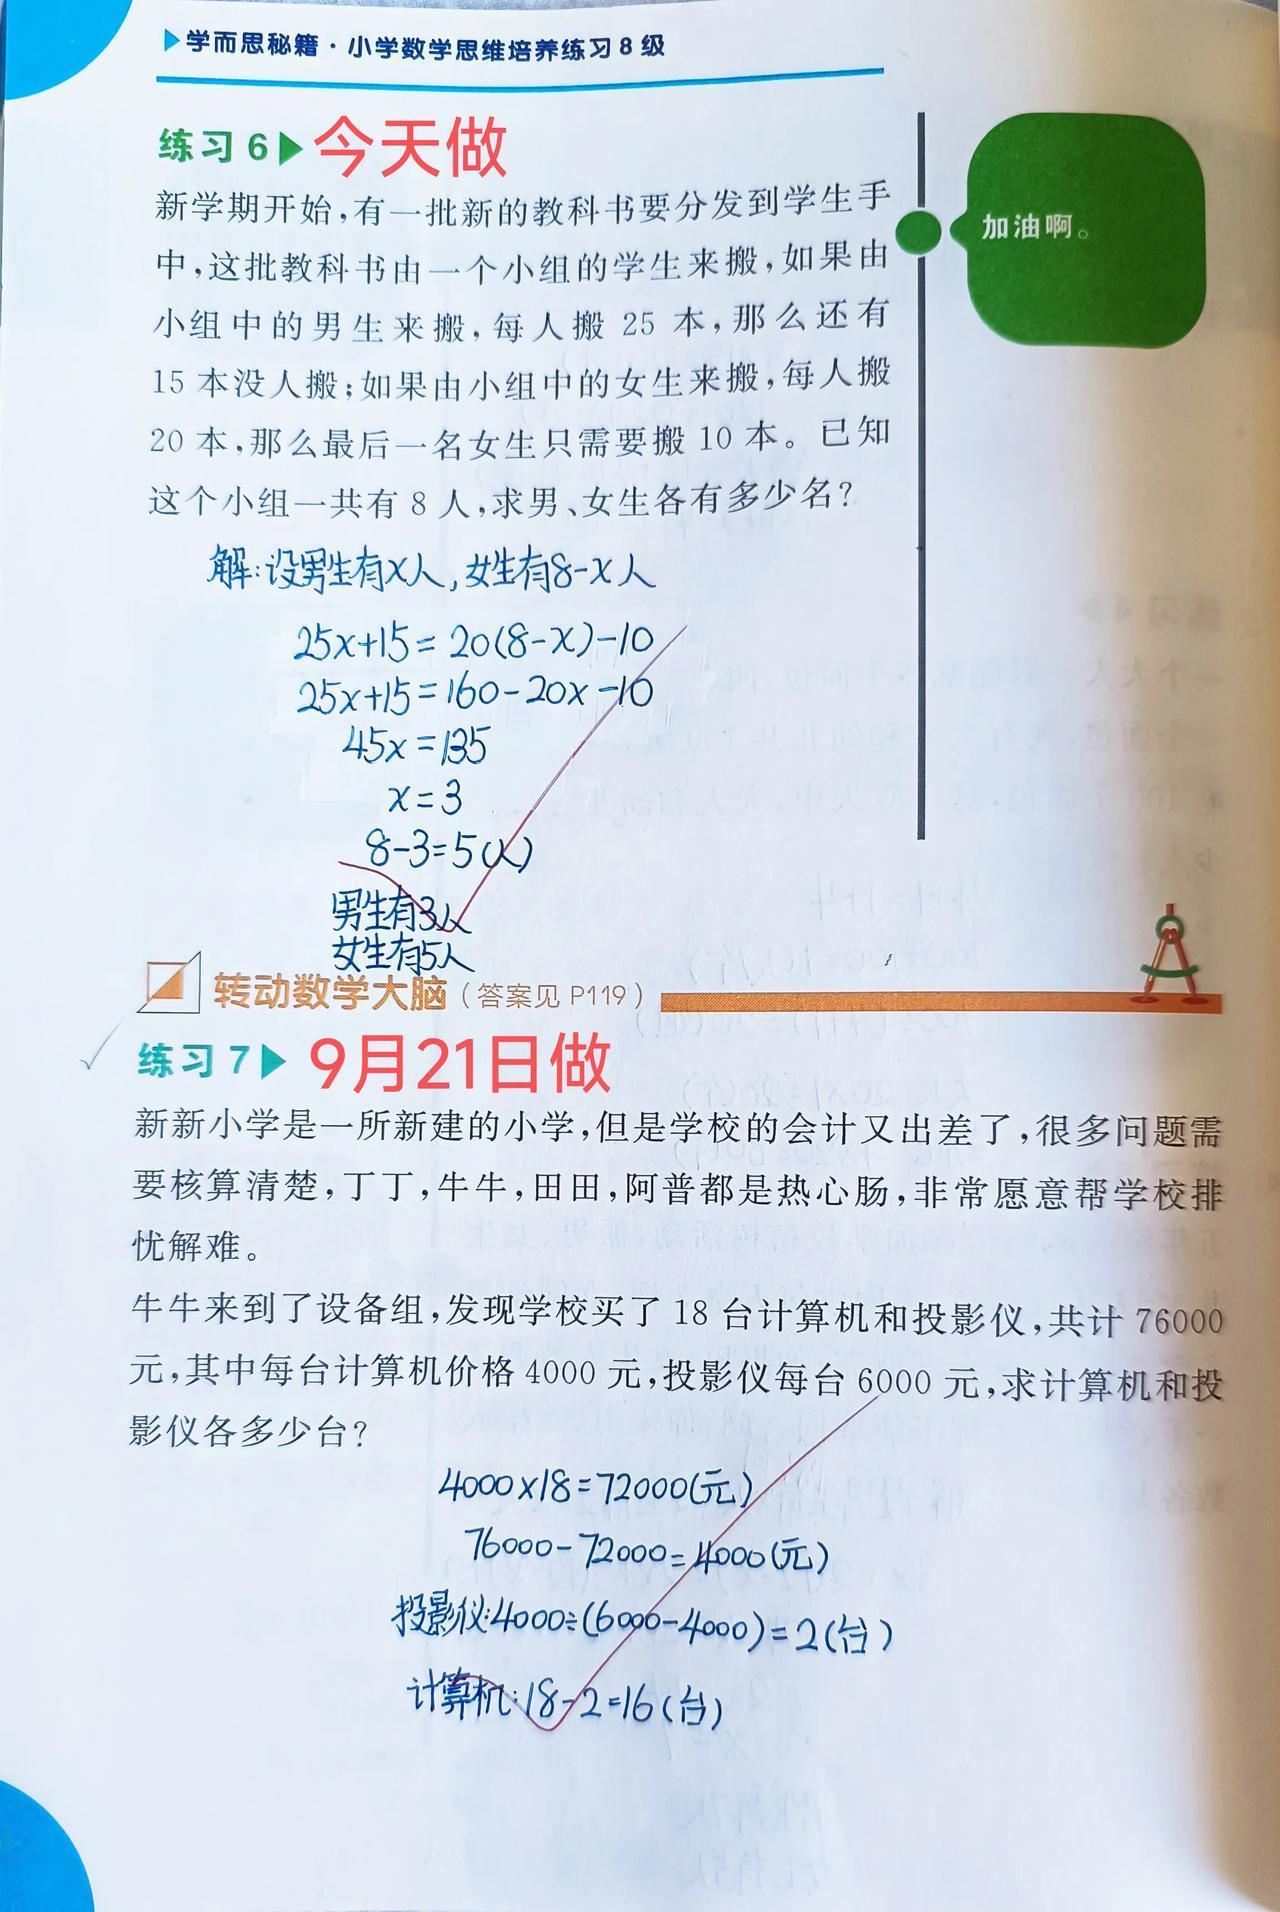 学而思秘籍·小学数学思维培养练习8级
练习6 今天做
新学期开始,有一批新的教科书要分发到学生手
中,这批教科书由一个小组的学生来搬,如果由
小组中的男生来搬,每人搬 25 本,那么还有
15 本没人搬;如果由小组中的女生来搬,每人搬
20 本,那么最后一名女生只需要搬 10 本。已知
这个小组一共有 8 人,求男、女生各有多少名?
加油啊。
解:设男生有x人,女生有8-x人
25x+15=20(8-x)-10
25x+15=160-20x-10
45x=135
x=3
8-3=5(人)
男生有3人
女生有5人
转动数学大脑(答案见 P119)
练习7 9月21日做
新新小学是一所新建的小学,但是学校的会计又出差了,很多问题需
要核算清楚,丁丁,牛牛,田田,阿普都是热心肠,非常愿意帮学校排
忧解难。
牛牛来到了设备组,发现学校买了 18 台计算机和投影仪,共计 76000
元,其中每台计算机价格 4000 元,投影仪每台 6000 元,求计算机和投
影仪各多少台?
4000×18=72000(元)
76000-72000=4000(元)
投影仪:4000÷(6000-4000)=2(台)
计算机:18-2=16(台)